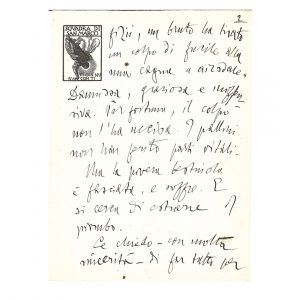 2
SQVADRA DI
SAN MARCO
fizii, un bruto ha tirato
un colpo di fucile alla
mia cagna
Dannosa, graziosa e inoffen
siva. Per fortuna, il colpo
non l'ha uccisa. I pallini
non han ferito parti vitali.
Ma la povera bestiola
è fasciata, e soffre. E
si cerca di estrarre il
piombo.
Le chiedo - con molta
sincerità - di far tutto per